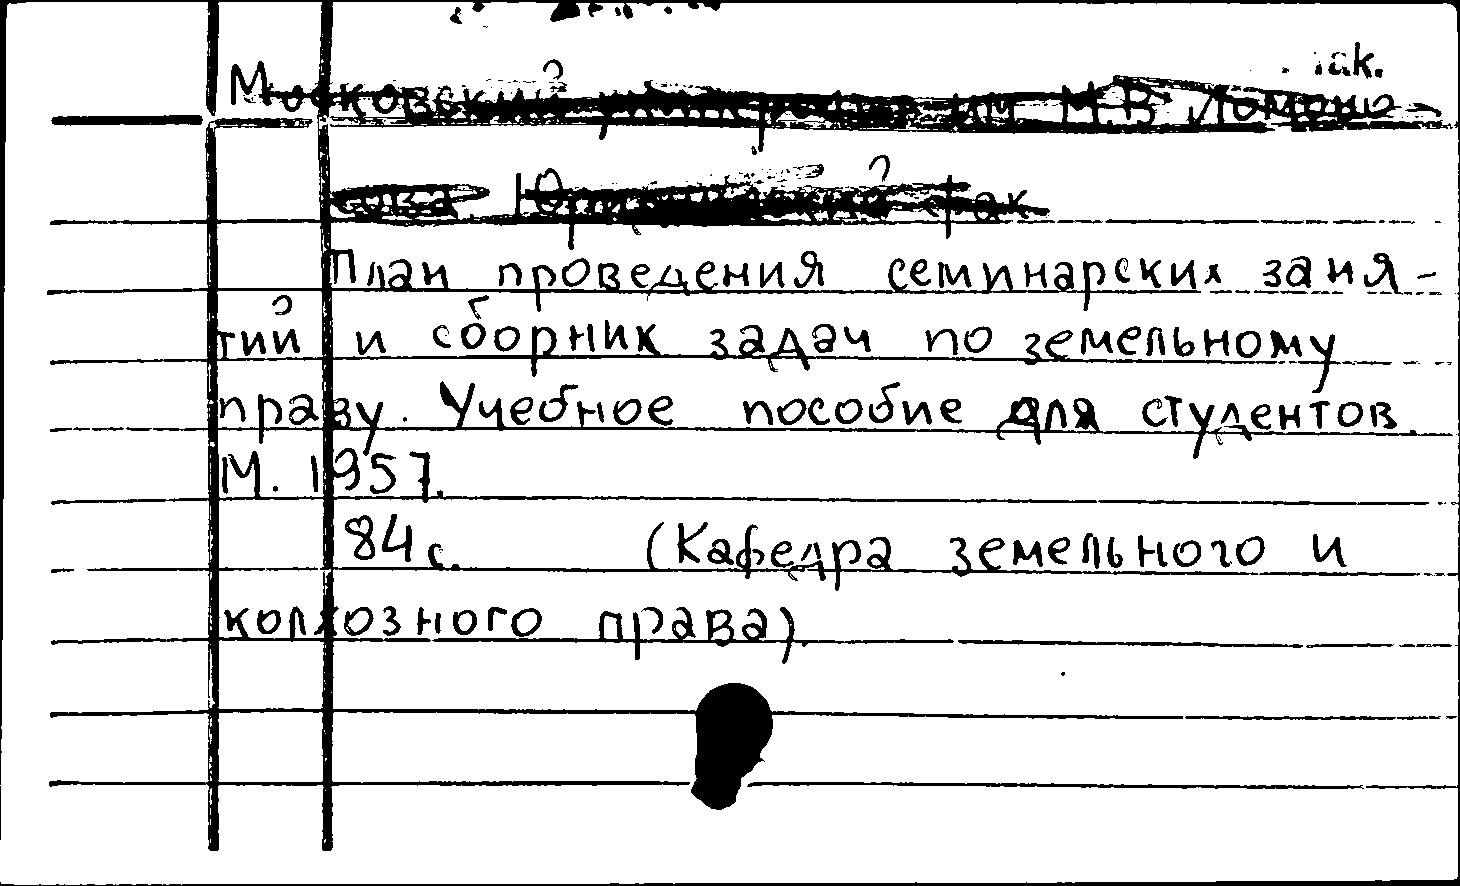 Московский университет им М.В Ломоно-
сова. Юридический фак
План проведения семинарских заня-
тий и сборник задач по земельному
праву. Учебное пособие для студентов.
М. 1957.
84 с. (Кафедра земельного и
колхозного права).